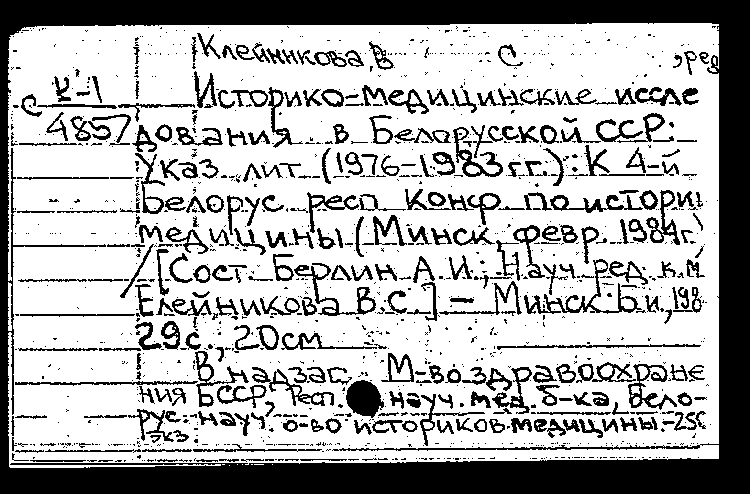 Клейникова, В С , ред
С К-1
4857
Историко-медицинские иссле
дования в Белорусской ССР:
Указ. лит (1976-1983 гг.): К 4-й
Белорус. респ. конф. по истори
медицины (Минск, февр. 1984г.)
/ [Сост. Берлин А.И.; Науч. ред. к.м
Елейникова В.С.] – Минск: Б.и, 198
29с., 20см
В надзаг. М-во здравоохране
ния БССР, Респ. науч. мед. б-ка, Бело-
рус. науч. о-во историков медицины.-250
1экз